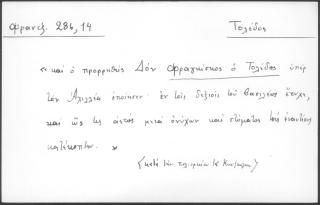 Φραντζ. 286, 14 Τολέδος
« καὶ ὁ προρρηθεὶς Δὸν Φραγκίσκος ὁ Τολέδος ὑπὲρ
τὸν Ἀχιλλέα ἐποίησεν· ἐν τοῖς δεξιοῖς τοῦ βασιλέως ἔτυχε,
καὶ ὥς τις ἀετὸς μετὰ ὀνύχων καὶ στόματος τοὺς ἐναντίους
κατέκοπτεν. »
(κατὰ τὴν πολιορκία τῆς